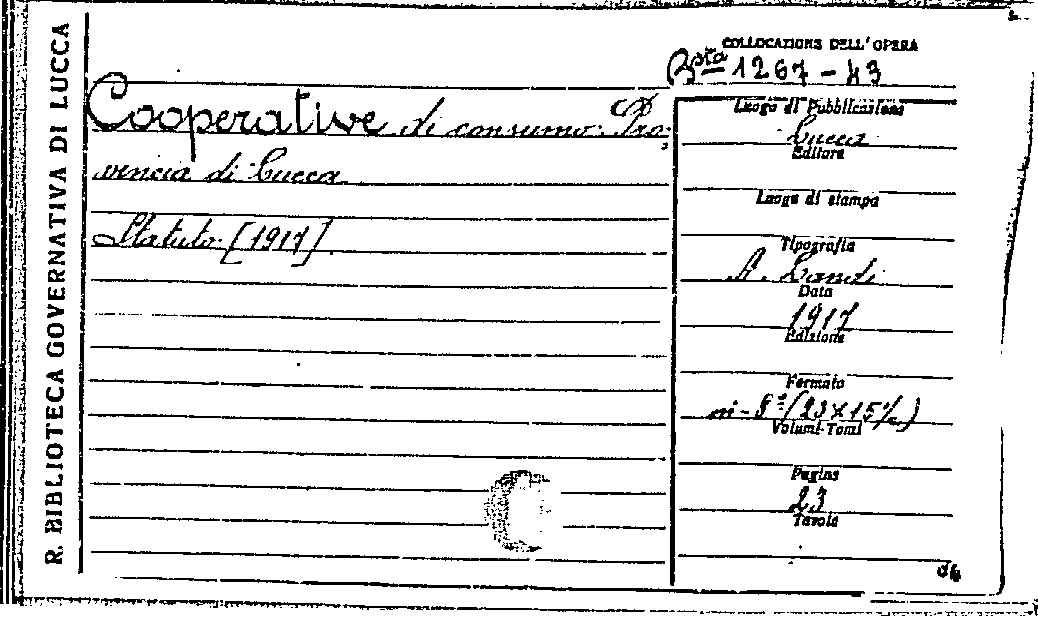 R. BIBLIOTECA GOVERNATIVA DI LUCCA
COLLOCAZIONE DELL'OPERA
Bsta 1267-43
Cooperative di consumo. Pro-
vincia di Lucca
Statuto. [1917].
Luogo di Pubblicazione
Lucca
Editore
Luogo di stampa
Tipografia
A. Landi
Data
1917
Edizione
Formato
in-8° (23x15 1/2)
Volumi-Tomi
Pagine
23
Tavole